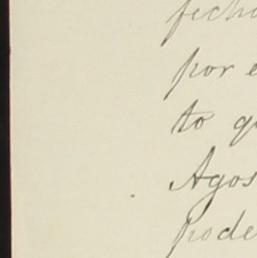 fech
por e
to q
Agos
pode